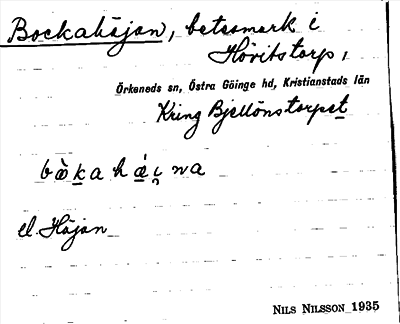 Bockahöjan, betesmark i
Hövitstorp,
Örkeneds sn, Östra Göinge hd, Kristianstads län
Kring Bjellönstorpet
el. Höjan
NILS NILSSON 1935